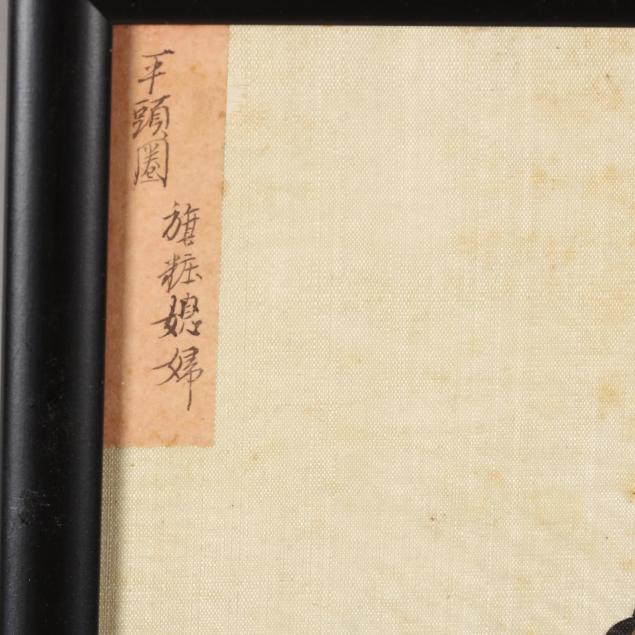 平頭圈
旗粧媳婦